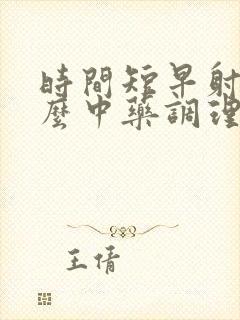 時間短早射
麽中藥調理
王倩